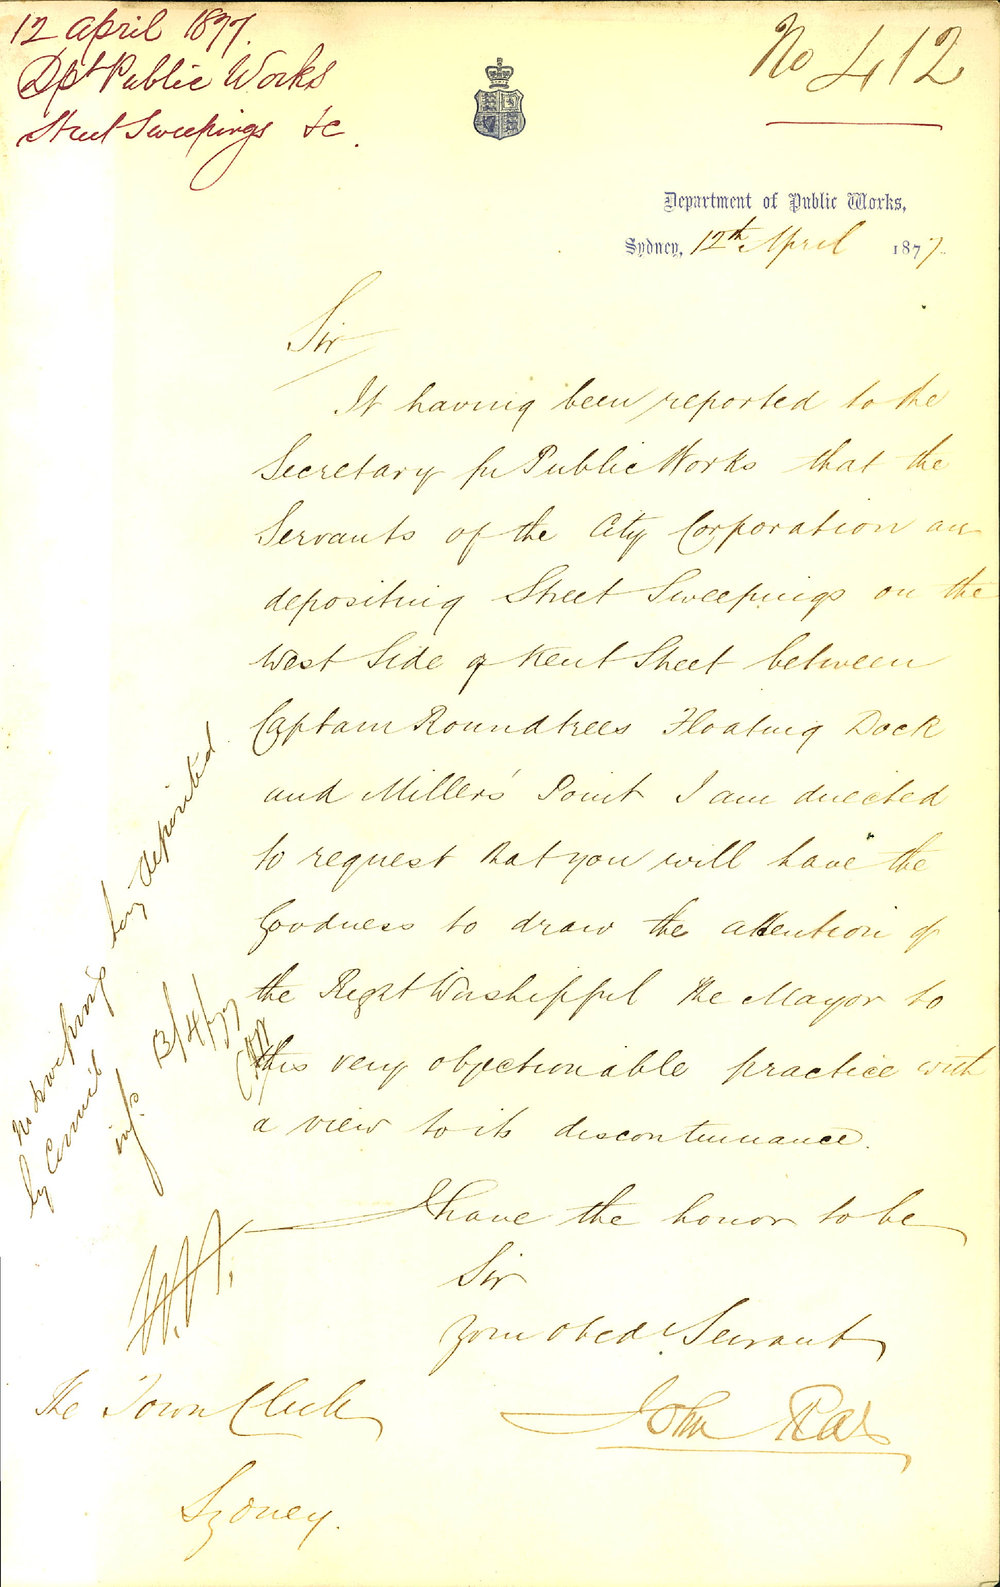 12 April 1877.
Dpt Public Works
Street Sweepings &c.
No 412
Department of Public Works,
Sydney, 12th April 1877.
Sir
It having been reported to the
Secretary for Public Works that the
Servants of the City Corporation are
depositing Street Sweepings on the
West Side of Kent Street between
Captain Roundtrees Floating Dock
and Millers' Point I am directed
to request that you will have the
Goodness to draw the attention of
the Right Worshipful the Mayor to
this very objectionable practice with
a view to its discontinuance.
I have the honor to be
Sir
Your obed Servant
John Rae
The Town Clerk
Sydney.
No sweepings being deposited
by Council
13/4/77